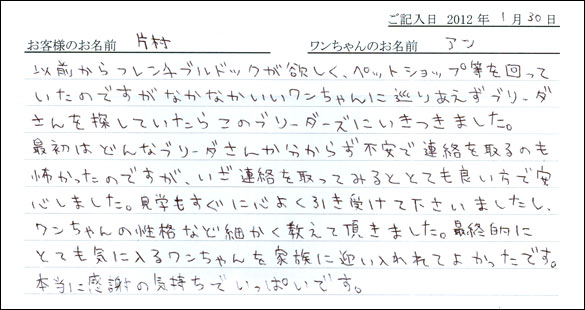 ご記入日 2012 年 1 月 30 日
お客様のお名前 片村 ワンちゃんのお名前 アン
以前からフレンチブルドックが欲しく、ペットショップ等を回って
いたのですがなかなかいいワンちゃんに巡りあえずブリーダ
さんを探していたらこのブリーダーズにいきつきました。
最初はどんなブリーダさんか分からず不安で連絡を取るのも
怖かったのですが、いざ連絡を取ってみるととても良い方で安
心しました。見学もすぐに心よく引き受けて下さいましたし、
ワンちゃんの性格など細かく教えて頂きました。最終的に
とても気に入るワンちゃんを家族に迎い入れれてよかったです。
本当に感謝の気持ちでいっぱいです。